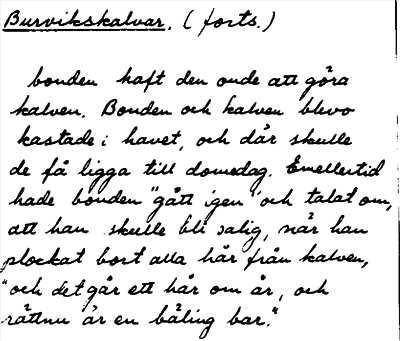 Burvikskalvar. (forts.)
bonden haft den onde att göra
kalven. Bonden och kalven blevo
kastade i havet, och där skulle
de få ligga till domedag. Emellertid
hade bonden "gått igen" och talat om,
att han skulle bli salig, när han
plockat bort alla hår från kalven,
"och det går ett hår om år, och
rättnu är en båling bar."